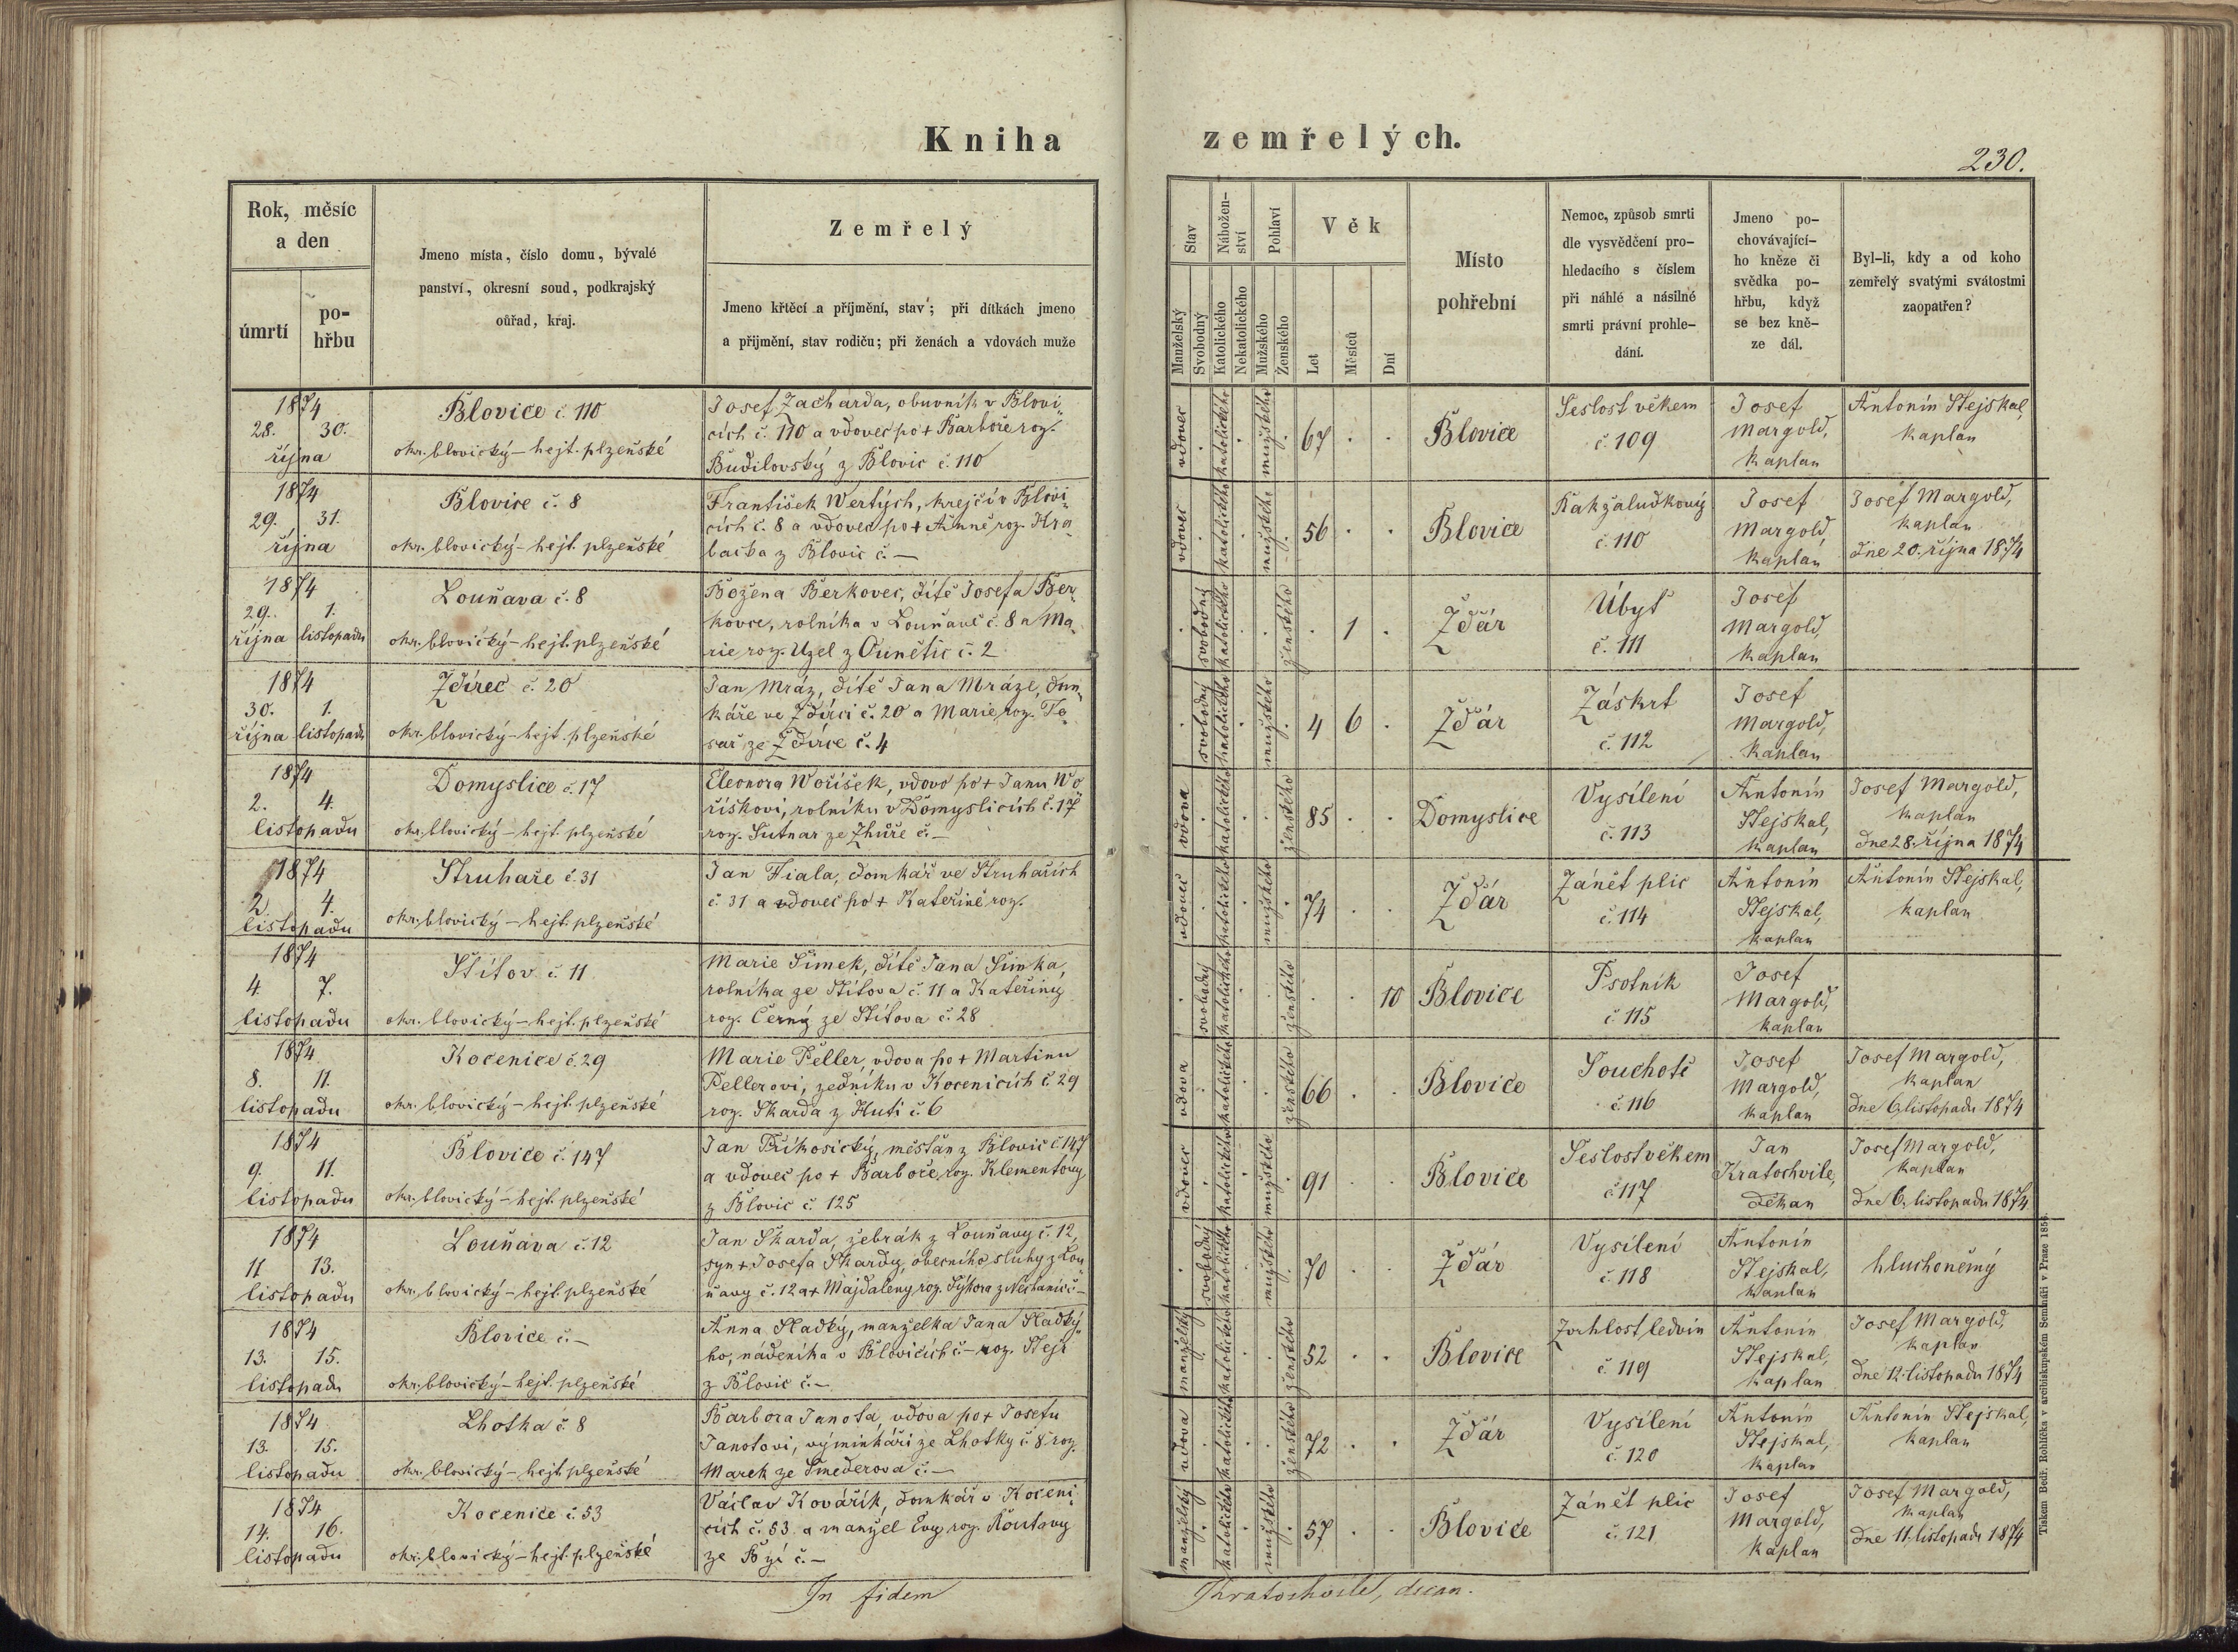 Kniha
zemřelých.
230.
Rok, měsíc
a den
úmrtí
po-
hřbu
Jmeno místa, číslo domu, bývalé
panství, okresní soud, podkrajský
ouřad, kraj.
Zemřelý
Jmeno křtěcí a příjmění, stav; při dítkách jmeno
a přijmění, stav rodiču; při ženách a vdovách muže
Stav
Manželský
Svobodný
Nábožen-
ství
Katolického
Nekatolického
Pohlaví
Mužského
Ženského
Věk
Let
Měsíců
Dní
Místo
pohřební
Nemoc, způsob smrti
dle vysvědčení pro-
hledacího s číslem
při náhlé a násilné
smrti právní prohle-
dání.
Jmeno po-
chovávající-
ho kněze či
svědka po-
hřbu, když
se bez kně-
ze dál.
Byl-li, kdy a od koho
zemřelý svatými svátostmi
zaopatřen?
1874
28. 30.
října
Blovice č. 110
okr. blovický – hejt. plzeňské
Josef Zacharda, obuvník v Blovi-
cích č. 110 a vdovec po + Barboře roz.
Budilovský z Blovic č. 110
vdovec katolického mužského 67 . .
Blovice
Sešlost věkem
č. 109
Josef
Margold,
kaplan
Antonín Stejskal,
kaplan
1874
29. 31.
října
Blovice č. 8
okr. blovický – hejt. plzeňské
František Wertých, krejčí v Blovi-
cích č. 8 a vdovec po + Anně roz. Hra-
bačka z Blovic č. –
vdovec katolického mužského 56 . .
Blovice
Rak žaludkový
č. 110
Josef
Margold,
kaplan
Josef Margold,
kaplan
dne 20. října 1874
1874
29. 1.
října listopadu
Louňava č. 8
okr. blovický – hejt. plzeňské
Božena Berkovec, dítě Josefa Ber-
kovce, rolníka v Louňavě č. 8 a Ma-
rie roz. Uzel z Ounětic č. 2
svobodný katolického ženského . 1 .
Ždár
Úbyť
č. 111
Josef
Margold,
kaplan
1874
30. 1.
října listopadu
Ždírec č. 20
okr. blovický – hejt. plzeňské
Jan Mráz, dítě Jana Mráze, dom-
káře ve Ždírci č. 20 a Marie, roz. Te-
sař, ze Ždírce č. 4
svobodný katolického mužského 4 6 .
Ždár
Záskrt
č. 112
Josef
Margold,
kaplan
1874
2. 4.
listopadu
Domyslice č. 17
okr. blovický – hejt. plzeňské
Eleonora Woříšek, vdova po + Janu Wo-
říškovi, rolníku v Domyslicích č. 17
roz. Sutnar ze Zhůře č. –
vdova katolického ženského 85 . .
Domyslice
Vysílení
č. 113
Antonín
Stejskal,
kaplan
Josef Margold,
kaplan
dne 28. října 1874
1874
2. 4.
listopadu
Struhaře č. 31
okr. blovický – hejt. plzeňské
Jan Fiala, domkář ve Struhařích
č. 31 a vdovec po + Kateřině roz.
vdovec katolického mužského 74 . .
Ždár
Zánět plic
č. 114
Antonín
Stejskal,
kaplan
Antonín Stejskal,
kaplan
1874
4. 7.
listopadu
Štítov č. 11
okr. blovický – hejt. plzeňské
Marie Šimek, dítě Jana Šimka,
rolníka ze Štítova č. 11 a Kateřiny
roz. Černý ze Štítova č. 28
svobodný katolického ženského . . 10
Blovice
Psotník
č. 115
Josef
Margold,
kaplan
1874
8. 11.
listopadu
Kocenice č. 29
okr. blovický – hejt. plzeňské
Marie Peller, vdova po + Martinu
Pellerovi, zedníku v Kocenicích č. 29
roz. Skarda z Huti č. 6
vdova katolického ženského 66 . .
Blovice
Souchotě
č. 116
Josef
Margold,
kaplan
Josef Margold,
kaplan
dne 6. listopadu 1874
1874
9. 11.
listopadu
Blovice č. 147
okr. blovický – hejt. plzeňské
Jan Příkosický, měšťan z Blovic č. 147
a vdovec po + Barboře, roz. Klementovy
z Blovic č. 125
vdovec katolického mužského 91 . .
Blovice
Sešlost věkem
č. 117
Jan
Kratochvile,
děkan
Josef Margold,
kaplan
dne 6. listopadu 1874
1874
11 13.
listopadu
Louňava č. 12
okr. blovický – hejt. plzeňské
Jan Skarda, žebrák z Louňavy č. 12,
syn + Josefa Skardy, obecního sluhy z Lou-
ňavy č. 12 a + Majdaleny roz. Sýkora z Nechanic č –
svobodný katolického mužského 70 . .
Ždár
Vysílení
č. 118
Antonín
Stejskal,
kaplan
hluchoněmý
1874
13. 15.
listopadu
Blovice č. –
okr. blovický – hejt. plzeňské
Anna Sladký, manželka Jana Sladký-
ho, nádeníka v Blovicích č – roz. Stejs
z Blovic č. –
manželský katolického ženského 52 . .
Blovice
Zvrhlost ledvin
č. 119
Antonín
Stejskal,
kaplan
Josef Margold,
kaplan
dne 12. listopadu 1874
1874
13. 15.
listopadu
Lhotka č. 8
okr. blovický – hejt. plzeňské
Barbora Janota, vdova po + Josefu
Janotovi, výminkáři ze Lhotky č. 8 roz.
Marek ze Smederova č. –
vdova katolického ženského 72 . .
Ždár
Vysílení
č. 120
Antonín
Stejskal,
kaplan
Antonín Stejskal,
kaplan
1874
14. 16.
listopadu
Kocenice č. 53
okr. blovický – hejt. plzeňské
Václav Kovářík, domkář v Koceni-
cích č. 53 a manžel Evy roz. Koutovy
ze Bzí č. –
manželský katolického mužského 57 . .
Blovice
Zánět plic
č. 121
Josef
Margold,
kaplan
Josef Margold,
kaplan
dne 11. listopadu 1874
In fidem
Kratochvile, decan.
Tiskem Bedř. Rohlíčka v arcibiskupském Semináři v Praze 1856.